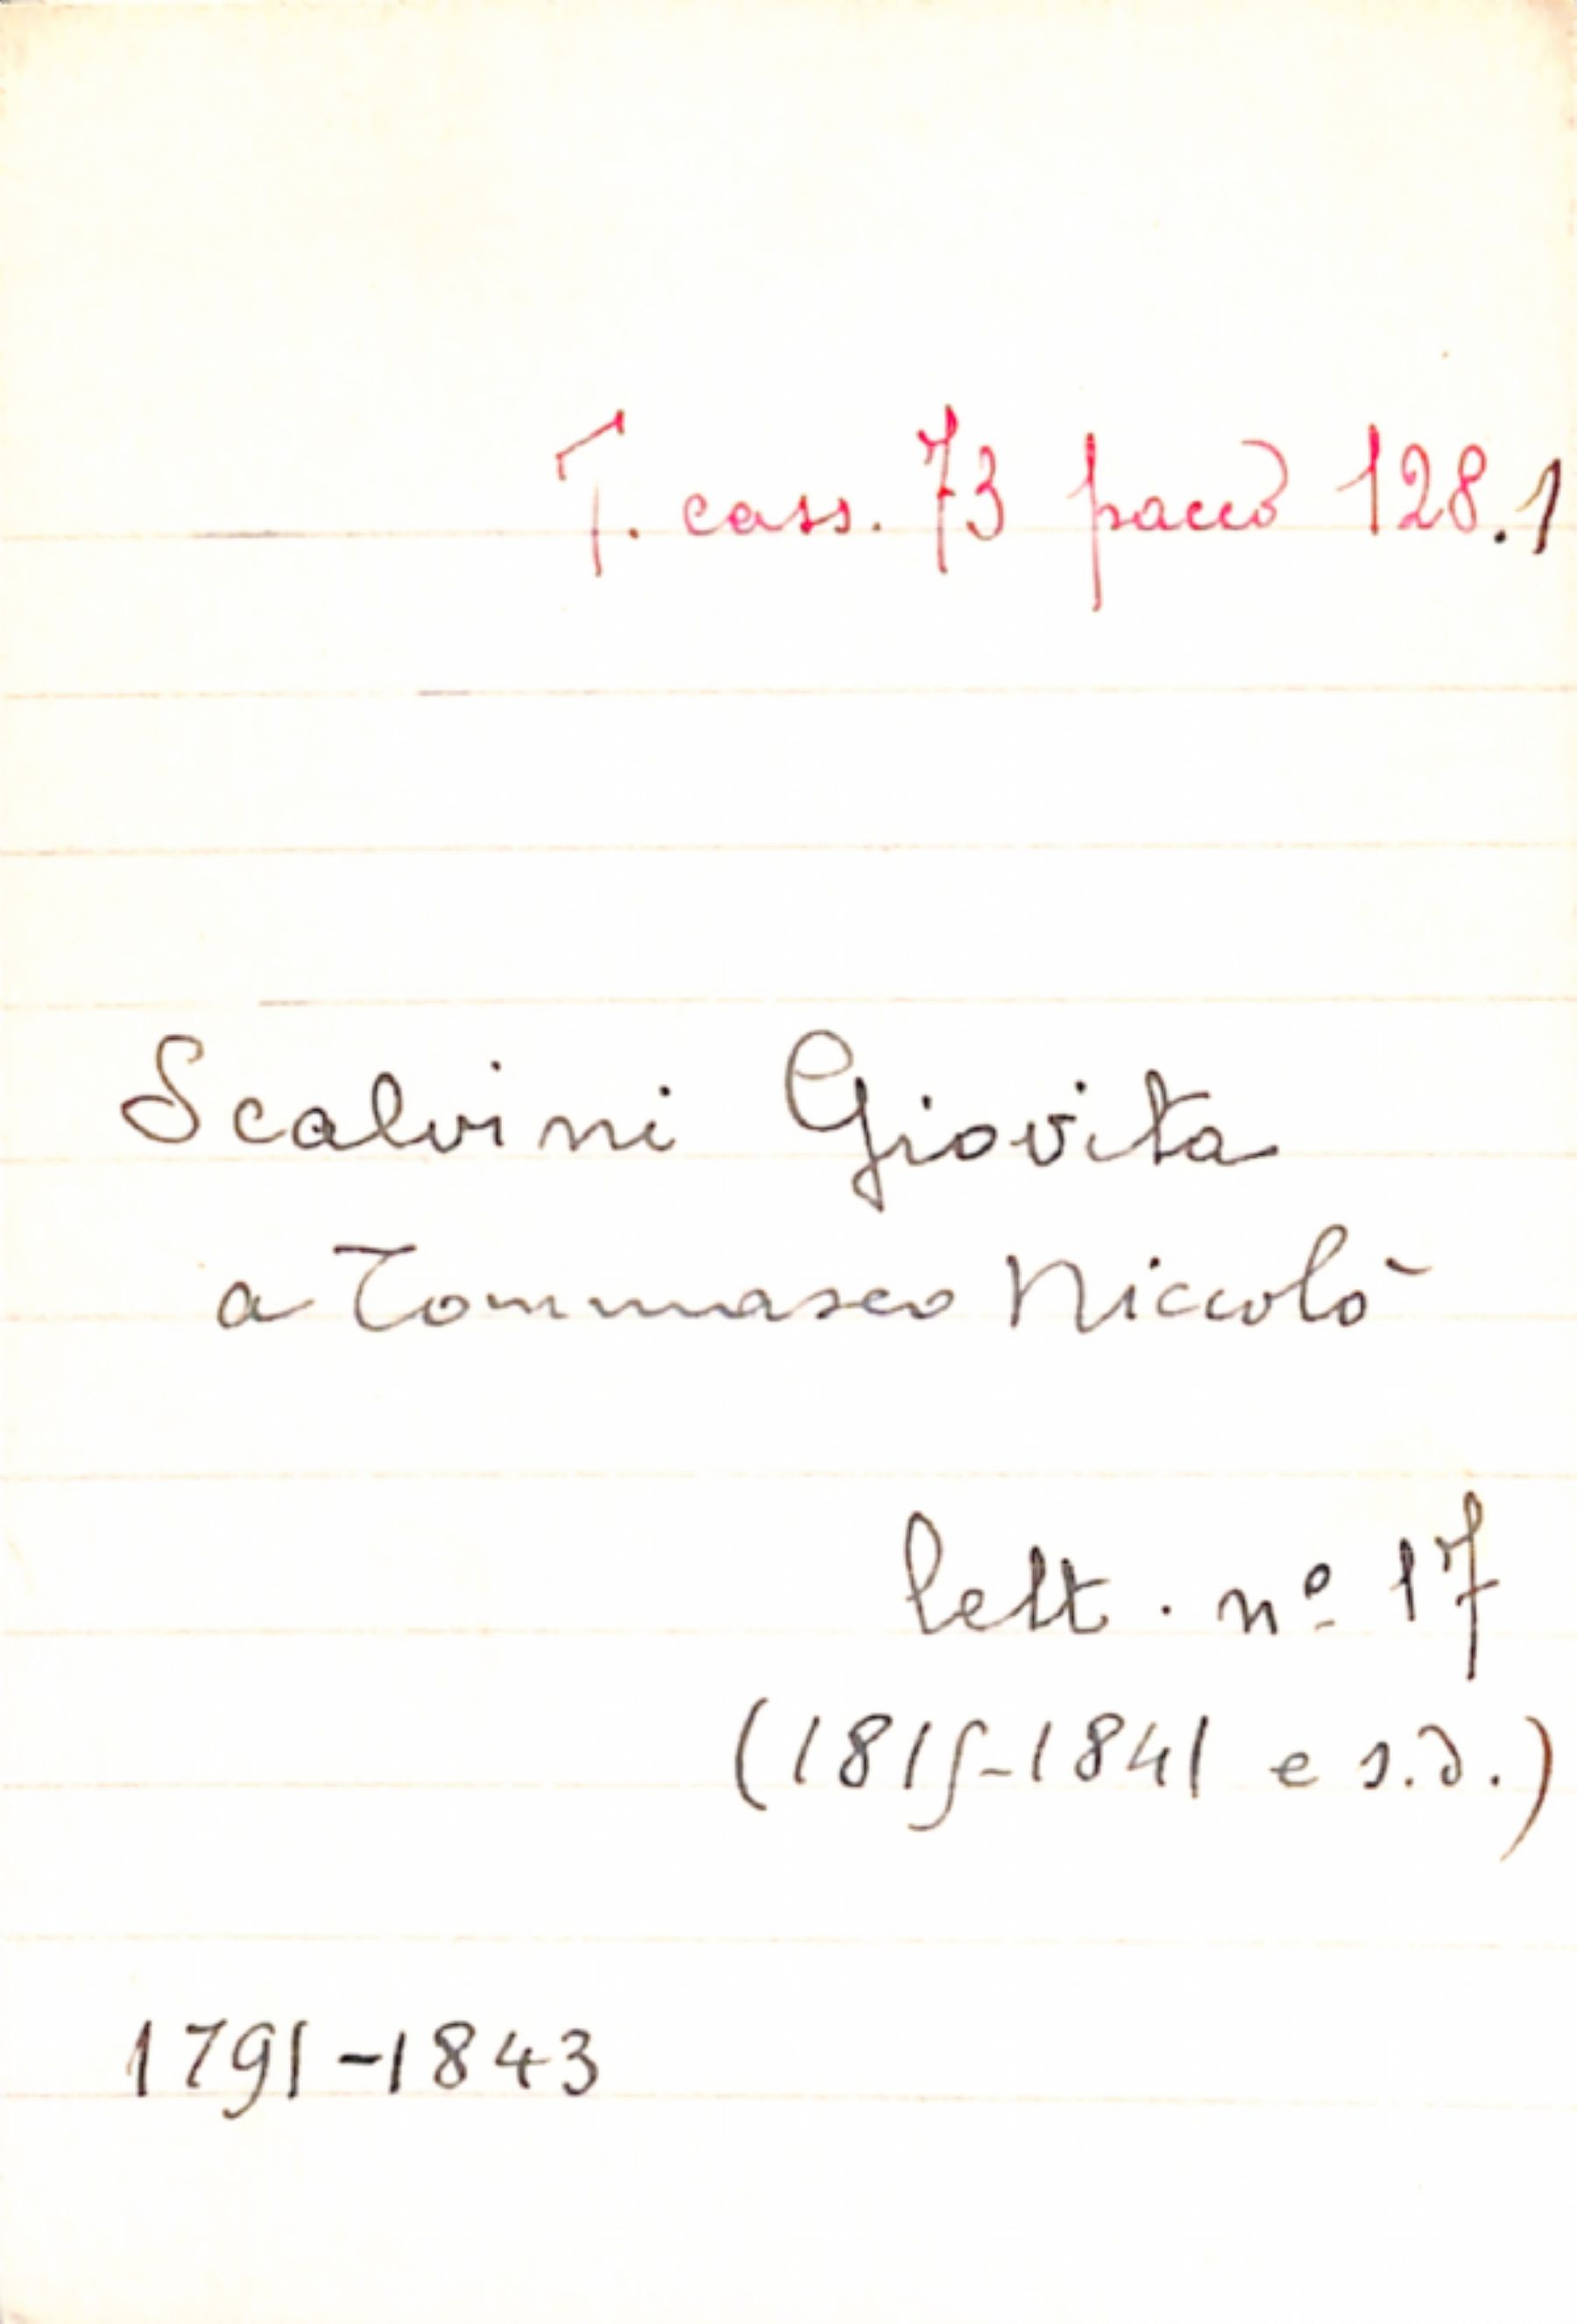 T. cass. 73 pacco 128.1
Scalvini Giovita
a Tommaseo Niccolò
lett. nº 17
(1815-1841 e s.d.)
1791-1843